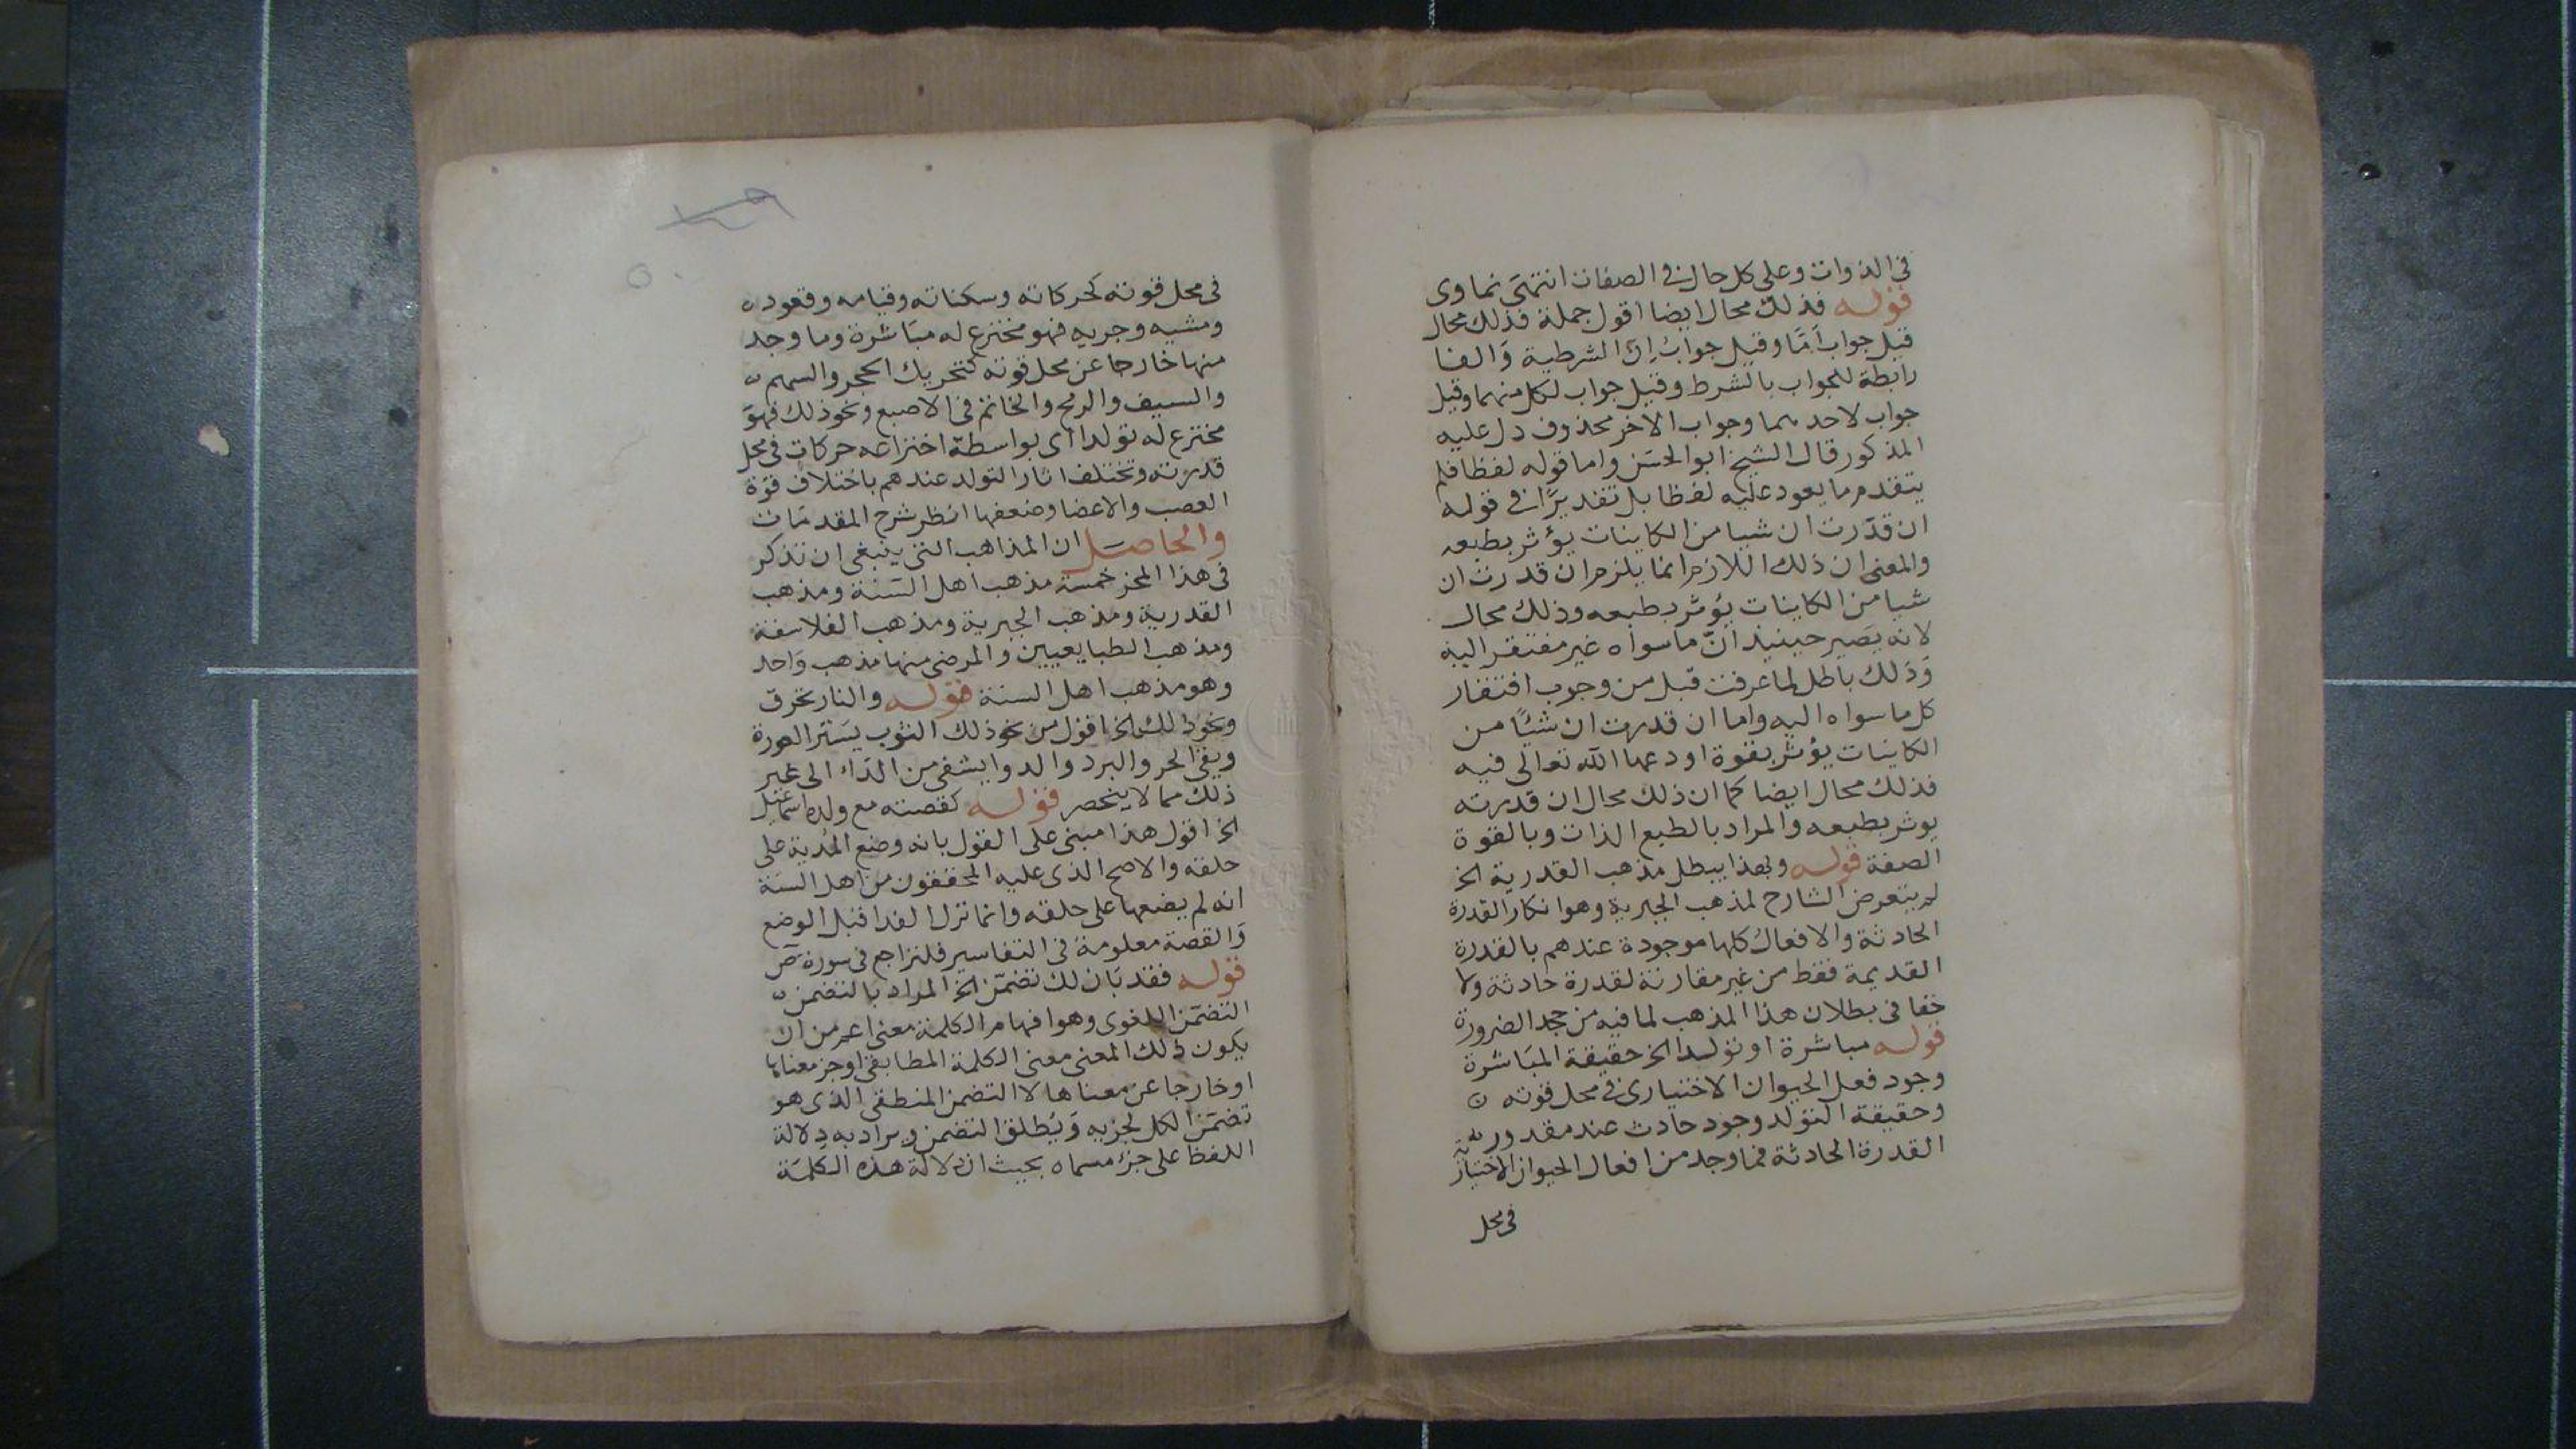 في الذوات وعلى كل حال في الصفات انتهى نماوى
قوله فذلك محال ايضا اقول جملة فذلك محال
قيل جواب اما وقيل جواب ان الشرطية والفا
رابطة للجواب بالشرط وقيل جواب لكل منهما وقيل
جواب لاحدهما وجواب الاخر محذوف دل عليه
المذكور قال الشيخ ابو الحسن واما قوله لفظا فلم
يتقدم ما يعود عليه لفظا بل تقديرًا في قوله
ان قدّرت ان شيا من الكاينات يؤثر بطبعه
والمعنى ان ذلك اللازم انما يلزم ان قدرت ان
شيا من الكاينات يؤثر بطبعه وذلك محال
لانه يصير حينيذ انّ ما سواه غير مفتقر اليه
وذلك باطل لما عرفت قبل من وجوب افتقار
كل ما سواه اليه واما ان قدرت ان شيئًا من
الكاينات يؤثر بقوة اودعها الله تعالى فيه
فذلك محال ايضا كما ان ذلك محال ان قدرته
يوثر بطبعه والمراد بالطبع الذات وبالقوة
الصفة قوله وبهذا يبطل مذهب القدرية الخ
لم يتعرض الشارح لمذهب الجبرية وهو انكار القدرة
الحادثة والافعال كلها موجودة عندهم بالقدرة
القديمة فقط من غير مقارنة لقدرة حادثة ولا
خفا في بطلان هذا المذهب لما فيه من جحد الضرورة
قوله مباشرة او تولدا الخ حقيقة المباشرة
وجود فعل الحيوان الاختيارى في محل قوته
وحقيقة التولد وجود حادث عند مقدور
القدرة الحادثة فما وجد من افعال الحيوان الاختيارية
في محل
في محل قوته كحركاته وسكناته وقيامه وقعوده
ومشيه وجريه فهو مخترع له مباشرة وما وجد
منها خارجا عن محل قوته كتحريك الحجر والسهم
والسيف والرمح والخاتم في الاصبع ونحو ذلك فهو
مخترع له تولدا اى بواسطة اختراعه حركات في محل
قدرته وتختلف اثار التولد عندهم باختلاف قوة
العصب والاعضا وضعفها انظر شرح المقدمات
والحاصل ان المذاهب التي ينبغي ان تذكر
في هذا المحز خمسة مذهب اهل السنة ومذهب
القدرية ومذهب الجبرية ومذهب الفلاسفة
ومذهب الطبايعيين والمرضى منها مذهب واحد
وهو مذهب اهل السنة قوله والنار تحرق
ونحو ذلك الخ اقول من نحو ذلك الثوب يستر العورة
ويقي الحر والبرد والدوا يشفى من الداء الى غير
ذلك مما لا ينحصر قوله كقصته مع ولده اسماعيل
الخ اقول هذا مبني على القول بانه وضع المدية على
حلقه والاصح الذى عليه المحققون من اهل السنة
انه لم يضعها على حلقه وانما نزل الفدا قبل الوضع
والقصة معلومة في التفاسير فلتراجع في سورة ص
قوله فقد بان لك تضمّن الخ المراد بالتضمن
التضمّن اللغوى وهو افهام الكلمة معنى اعم من ان
يكون ذلك المعنى معنى الكلمة المطابقى او جز معناها
او خارجا عن معناها لا التضمن المنطقى الذى هو
تضمّن الكل لجزيه ويُطلق التضمن ويراد به دلالة
اللفظ على جزء مسماه بحيث ان دلالة هذه الكلمة